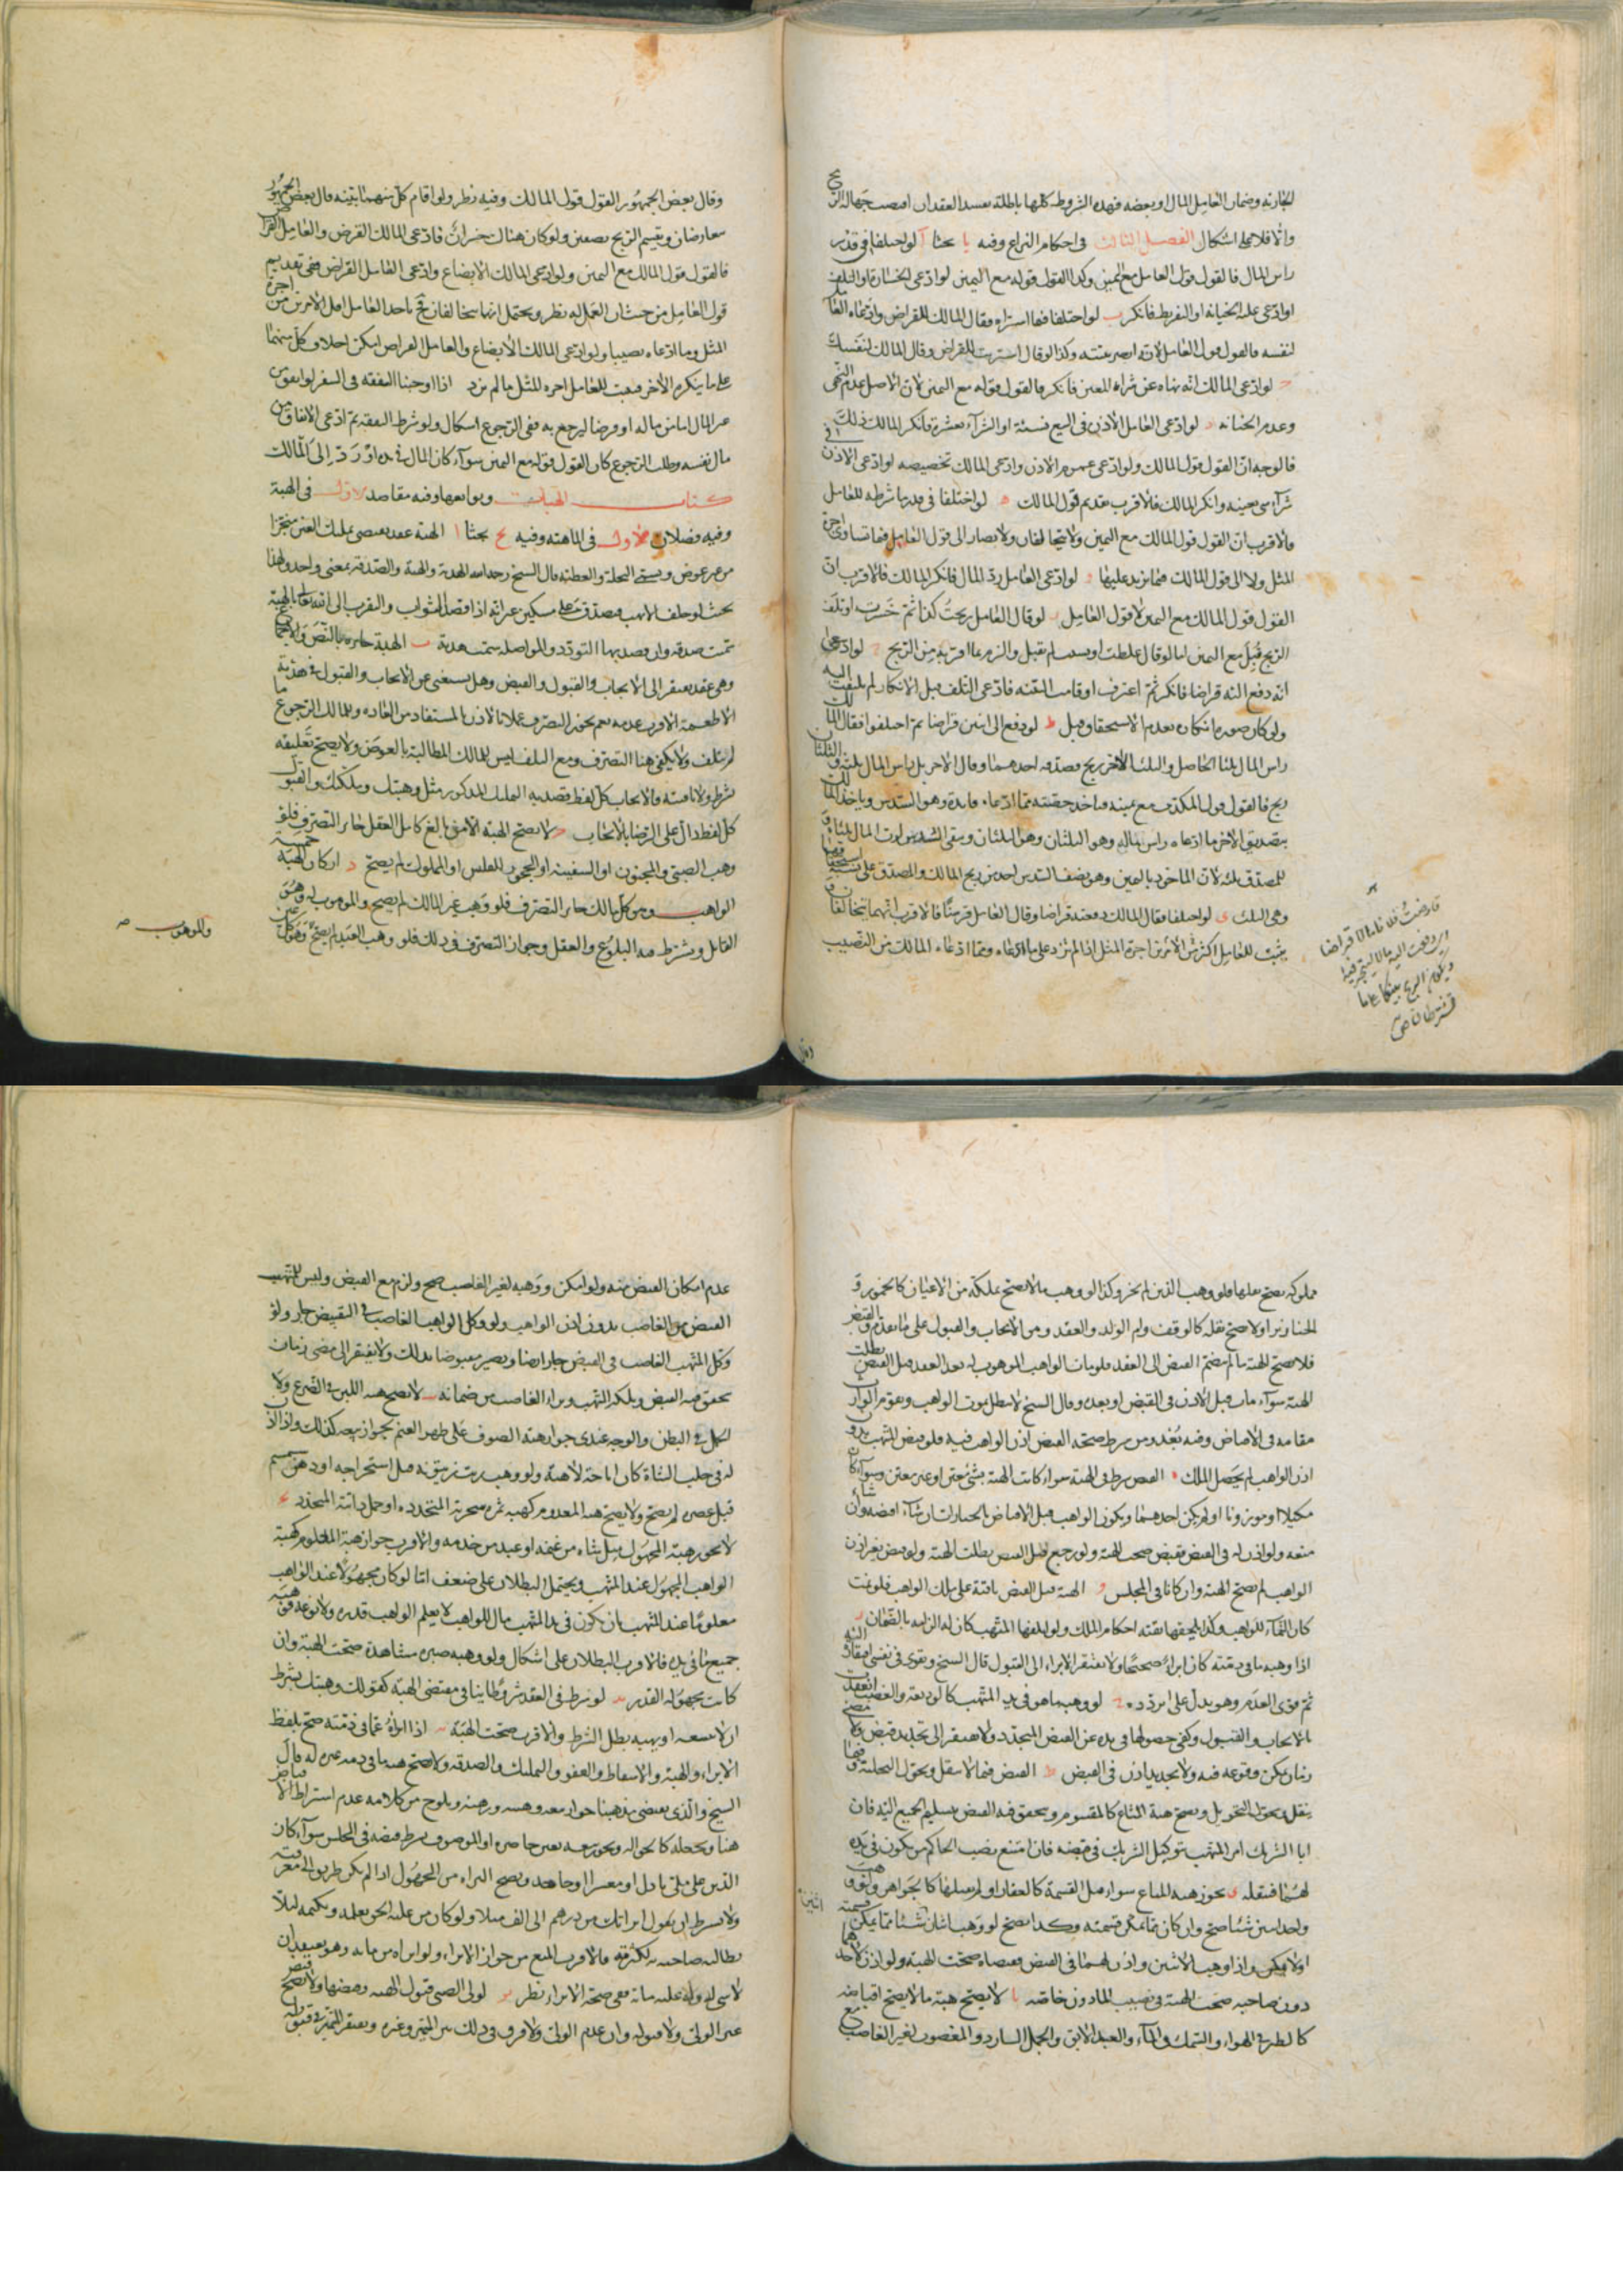 التجارية وضمان العامل المال او بعضه فهذه الشروط كلها باطلة يفسد العقد ان اقتضت جهالة الربح
والا فلا على اشكال الفصل الثالث فى احكام النزاع وفيه يا بحثا آ لو اختلفا فى قدر
راس المال فالقول قول العامل مع اليمين وكذا القول قوله مع اليمين لو ادعى الخسارة او التلف
او ادعى عليه الخيانة او التفريط فانكر ب لو اختلفا فيما اشتراه فقال المالك للقراض وادعاه العامل
لنفسه فالقول قول العامل لانه ابصر بنيته وكذا لو قال اشتريت للقراض وقال المالك لنفسك
ج لو ادعى المالك انه نهاه عن شراء المعين فانكر فالقول قوله مع اليمين لان الاصل عدم النهى
وعدم الخيانة د لو ادعى العامل الاذن فى البيع نسئة او الشرآء بعشرة فانكر المالك ذلك
فالوجه ان القول قول المالك ولو ادعى عموم الاذن وادعى المالك تخصيصه لو ادعى الاذن فى
شرآء شى بعينه وانكر المالك فالاقرب تقديم قول المالك ه لو اختلفا فى قدر ما شرطه للعامل
فالاقرب ان القول قول المالك مع اليمين ولا يتحالفان ولا يصار الى قول العامل فيما تساوى اجرة
المثل ولا الى قول المالك فيما يزيد عليها و لو ادعى العامل رد المال فانكر المالك فالاقرب ان
القول قول المالك مع اليمين لا قول العامل ز لو قال العامل ربحت كذا ثم خسرت او تلف
الربح قبل مع اليمين اما لو قال غلطت او نسيت لم تقبل والزم بما اقر به من الربح ح لو ادعى
انه دفع اليه قراضا فانكر ثم اعترف او قامت البينة فادعى التلف قبل الانكار لم يلتفت اليه
ولو كان صورة انكاره بعدم الاستحقاق قبل ط لو دفع الى اثنين قراضا ثم اختلفوا فقال المالك
راس المال ثلثا الحاصل والثلث الاخر ربح وصدقه احدهما وقال الاخر بل راس المال ثلثه والثلثان
ربح فالقول قول المكذب مع يمينه فياخذ حصته مما ادعاه فايدة وهو السدس وياخذ المالك
بتصديق الاخر ما ادعاه راس ماله وهو الثلثان وهو الثلثان ويبقى السدس
للمصدق ثلثه لان الماخوذ باليمين وهو نصف السدس
وهى الثلث ى لو اختلفا فقال المالك دفعته قراضا وقال العامل قرضا فالاقرب انهما يتحالفان
يثبت للعامل اكثر من الامرين اجرة المثل اذا لم تزد على ما ادعاه ومما ادعاه المالك من النصيب
قارضت فلانا مالا قراضا
اى دفعت اليه مالا ليتجر فيه
ويكون الربح بينكما على ما
تشترطان
وقال
وقال بعض الجمهور القول قول المالك وفيه نظر ولو اقام كل منهما بينة قال بعض الجمهور
يتعارضان ويقسم الربح نصفين ولو كان هناك خسران فادعى المالك القرض والعامل القراض
فالقول قول المالك مع اليمين ولو ادعى المالك الابضاع وادعى العامل القراض ففى تقديم
قول العامل من حيث ان العمل له نظر ويحتمل انهما يتحالفان فح ياخذ العامل اقل الامرين من اجرة
المثل وما ادعاه نصيبا ولو ادعى المالك الابضاع والعامل القراض امكن احلاف كل منهما
على ما ينكره الاخر فيثبت للعامل اجرة المثل ما لم يزد اذا اوجبنا النفقة فى السفر لو انفق من
غير المال اما من ماله او قرضا ليرجع به ففى الرجوع اشكال ولو شرط النفقة ثم ادعى الانفاق من
مال نفسه وطلب الرجوع كان القول قوله مع اليمين سوآء كان المال فى يده او رد الى المالك
كتاب الهبات وتوابعها وفيه مقاصد الاول فى الهبة
وفيه فصلان الاول فى الماهية وفيه ح بحثا ا الهبة عقد يقتضى تمليك العين منجزا
من غير عوض ويسمى النحلة والعطية قال الشيخ رحمه الله الهدية والهبة والصدقة بمعنى واحد ولهذا
بحيث لو حلف لا يهب فتصدق على مسكين غير انه اذا قصد الثواب والتقرب الى الله تعالى بالهبة
سميت صدقة وان قصد بها التودد والمواصلة سميت هدية ب الهبة جايزة بالنص والاجماع
وهى عقد يفتقر الى الايجاب والقبول والقبض وهل يستغنى عن الايجاب والقبول فى هدية
الاطعمة الاقرب عدمه نعم يجوز التصرف عملا بالاذن المستفاد من العادة وللمالك الرجوع ما
لم يتلف ولا يكفى هنا التصرف ومع التلف ليس للمالك المطالبة بالعوض ولا يصح تعليقه
بشرط ولا تاقيته فالايجاب كل لفظ قصد به التمليك المذكور مثل وهبتك وملكتك والقبول
كل لفظ دال على الرضا بالايجاب ج لا تصح الهبة الا من بالغ كامل العقل جايز التصرف فلو
وهب الصبى والمجنون او السفيه او المحجور للفلس او المملوك لم يصح د اركان الهبة خمسة
الواهب وهو كل مالك جايز التصرف فلو وهب غير المالك لم يصح والموهوب له وهو
القابل ويشترط فيه البلوغ والعقل وجواز التصرف فى ذلك فلو وهب العبد لم يصح وهو كل عين
والموهوب صح
مملوكة يصح نقلها فلو وهب الدين لم يجز وكذا لو وهب ما لا يصح تملكه من الاعيان كالخمور و
الخنازير او لا يصح نقله كالوقف وام الولد والعقد ومن الايجاب والقبول على ما تقدم والقبض
فلا تصح الهبة ما لم ينضم القبض الى العقد فلو مات الواهب او الموهوب له بعد العقد قبل القبض بطلت
الهبة سوآء مات قبل الاذن فى القبض او بعده وقال الشيخ لا تبطل بموت الواهب ويقوم الوارث
مقامه فى الاقباض وفيه بُعد ومن شرط صحة القبض اذن الواهب فيه فلو قبض المتهب بدون
اذن الواهب لم يحصل الملك ه القبض شرط فى الهبة سواء كانت الهبة بشئ معين او غير معين وسوآء كان
مكيلا او موزونا او لم يكن احدهما ويكون الواهب قبل الاقباض بالخيار ان شاء اقبضه وان شاء
منعه ولو اذن له فى القبض فقبض صحت الهبة ولو رجع قبل القبض بطلت الهبة ولو قبض بغير اذن
الواهب لم تصح الهبة وان كانا فى المجلس و الهبة قبل القبض باقية على ملك الواهب فلو نمت
كان النماء للواهب وكذا يلحقها بقية احكام الملك ولو اتلفها المتهب كان له الزامه بالضمان ز
اذا وهبه ما فى ذمته كان ابراء صحيحا ولا يفتقر الابراء الى القبول قال الشيخ ويقوى فى نفسى افتقاره اليه
ثم قوى العدم وهو يدل على تردده ح لو وهبه ما هو فى يد المتهب كالوديعة والغصب انعقدت
بالايجاب والقبول وكفى حصولها فى يده عن القبض المتجدد ولا يفتقر الى تجديد قبض ولا مضى
زمان يمكن وقوعه فيه ولا تجديد اذن فى القبض ط القبض فيما لا ينقل ويحول التخلية وفيما
ينقل ويحول التحويل وتصح هبة المشاع كالمقسوم ويتحقق فيه القبض بتسليم الجميع اليه فان
ابا الشريك امر المتهب بتوكيل الشريك فى قبضه فان امتنع نصب الحاكم من يكون فى يده
لهما فينقله ى يجوز هبة المشاع سواء قبل القسمة كالعقار او لم يقبلها كالجواهر ولو وهب
واحد اثنين شيئا صح وان كان مما يمكن قسمته وكذا يصح لو وهب اثنان شيئا مما يمكن قسمته
اثنين
او لا يمكن واذا وهب لاثنين واذن لهما فى القبض فقبضاه صحت الهبة ولو اذن لاحدهما
دون صاحبه صحت الهبة فى نصيب الماذون خاصة يا لا يصح هبة ما لا يصح اقباضه
كالطير فى الهواء والسمك فى الماء والعبد الابق والجمل الشارد والمغصوب لغير الغاصب مع
عدم امكان القبض منه ولو امكن ووهبه لغير الغاصب صح ولزم مع القبض وليس للمتهب
القبض من الغاصب بدون اذن الواهب ولو وكل الواهب الغاصب فى التقبيض جاز ولو
وكل المتهب الغاصب فى القبض جاز ايضا ويصير مقبوضا بذلك ولا يفتقر الى مضى زمان
يتحقق فيه القبض ويملكه المتهب وبراء الغاصب من ضمانه يب لا تصح هبة اللبن فى الضرع ولا
الحمل فى البطن والوجه عندى جواز هبة الصوف على ظهر الغنم بجواز بيعه كذلك واذا اذن
له فى حلب الشاة كان اباحة لا هبة ولو وهب زيت زيتونه قبل استخراجه او دهن سمسم
قبل عصره لم يصح ولا يصح هبة المعدوم كهبة ثمرة شجرته المتجددة او حمل دابته المتجدد يج
لا يجوز هبة المجهول مثل شاة من غنمه او عبد من خدمه والاقرب جواز هبة المعلوم كهبة
الواهب المجهول عند المتهب ويحتمل البطلان على ضعف اما لو كان مجهولا عند الواهب
معلوما عند المتهب بان يكون فى يد المتهب مال للواهب لا يعلم الواهب قدره ولا نوعه فوهبه
جميع ما فى يده فالاقرب البطلان على اشكال ولو وهبه صبرة مشاهدة صحت الهبة وان
كانت مجهولة القدر يد لو شرط فى العقد شروطا ينافى مقتضى الهبة كقولك وهبتك بشرط
ان لا تبيعه او تهبه بطل الشرط والاقرب صحت الهبة يه اذا ابراه عما فى ذمته صح بلفظ
الابراء والهبة والاسقاط والعفو والتمليك والصدقة ولا تصح هبة ما فى ذمة غيره له قال
الشيخ والذى يقتضى مذهبنا جواز بيعه وهبته ورهنه ويلوح من كلامه عدم اشتراط الاقباض
الدين على ملى باذل او معسرا او جاحد وتصح البراءة من المجهول اذا لم يكن طريق الى معرفته
ولا يشترط ان يقول ابراتك من درهم الى الف مثلا ولو كان من عليه الحق يعلمه ويكتمه لئلا
يطالبه صاحبه بكثرته فالاقرب المنع من جواز الابراء ولو ابراه من ماية وهو يعتقد ان
لا شى له وله عليه ماية ففى صحة الابراء نظر يو لولى الصبى قبول الهبة وقبضها ولا يصح قبض
غير الولى ولا قبوله وان عدم الولى ولا فرق فى ذلك بين المميز وغيره ويفتقر المميز فى قبوله